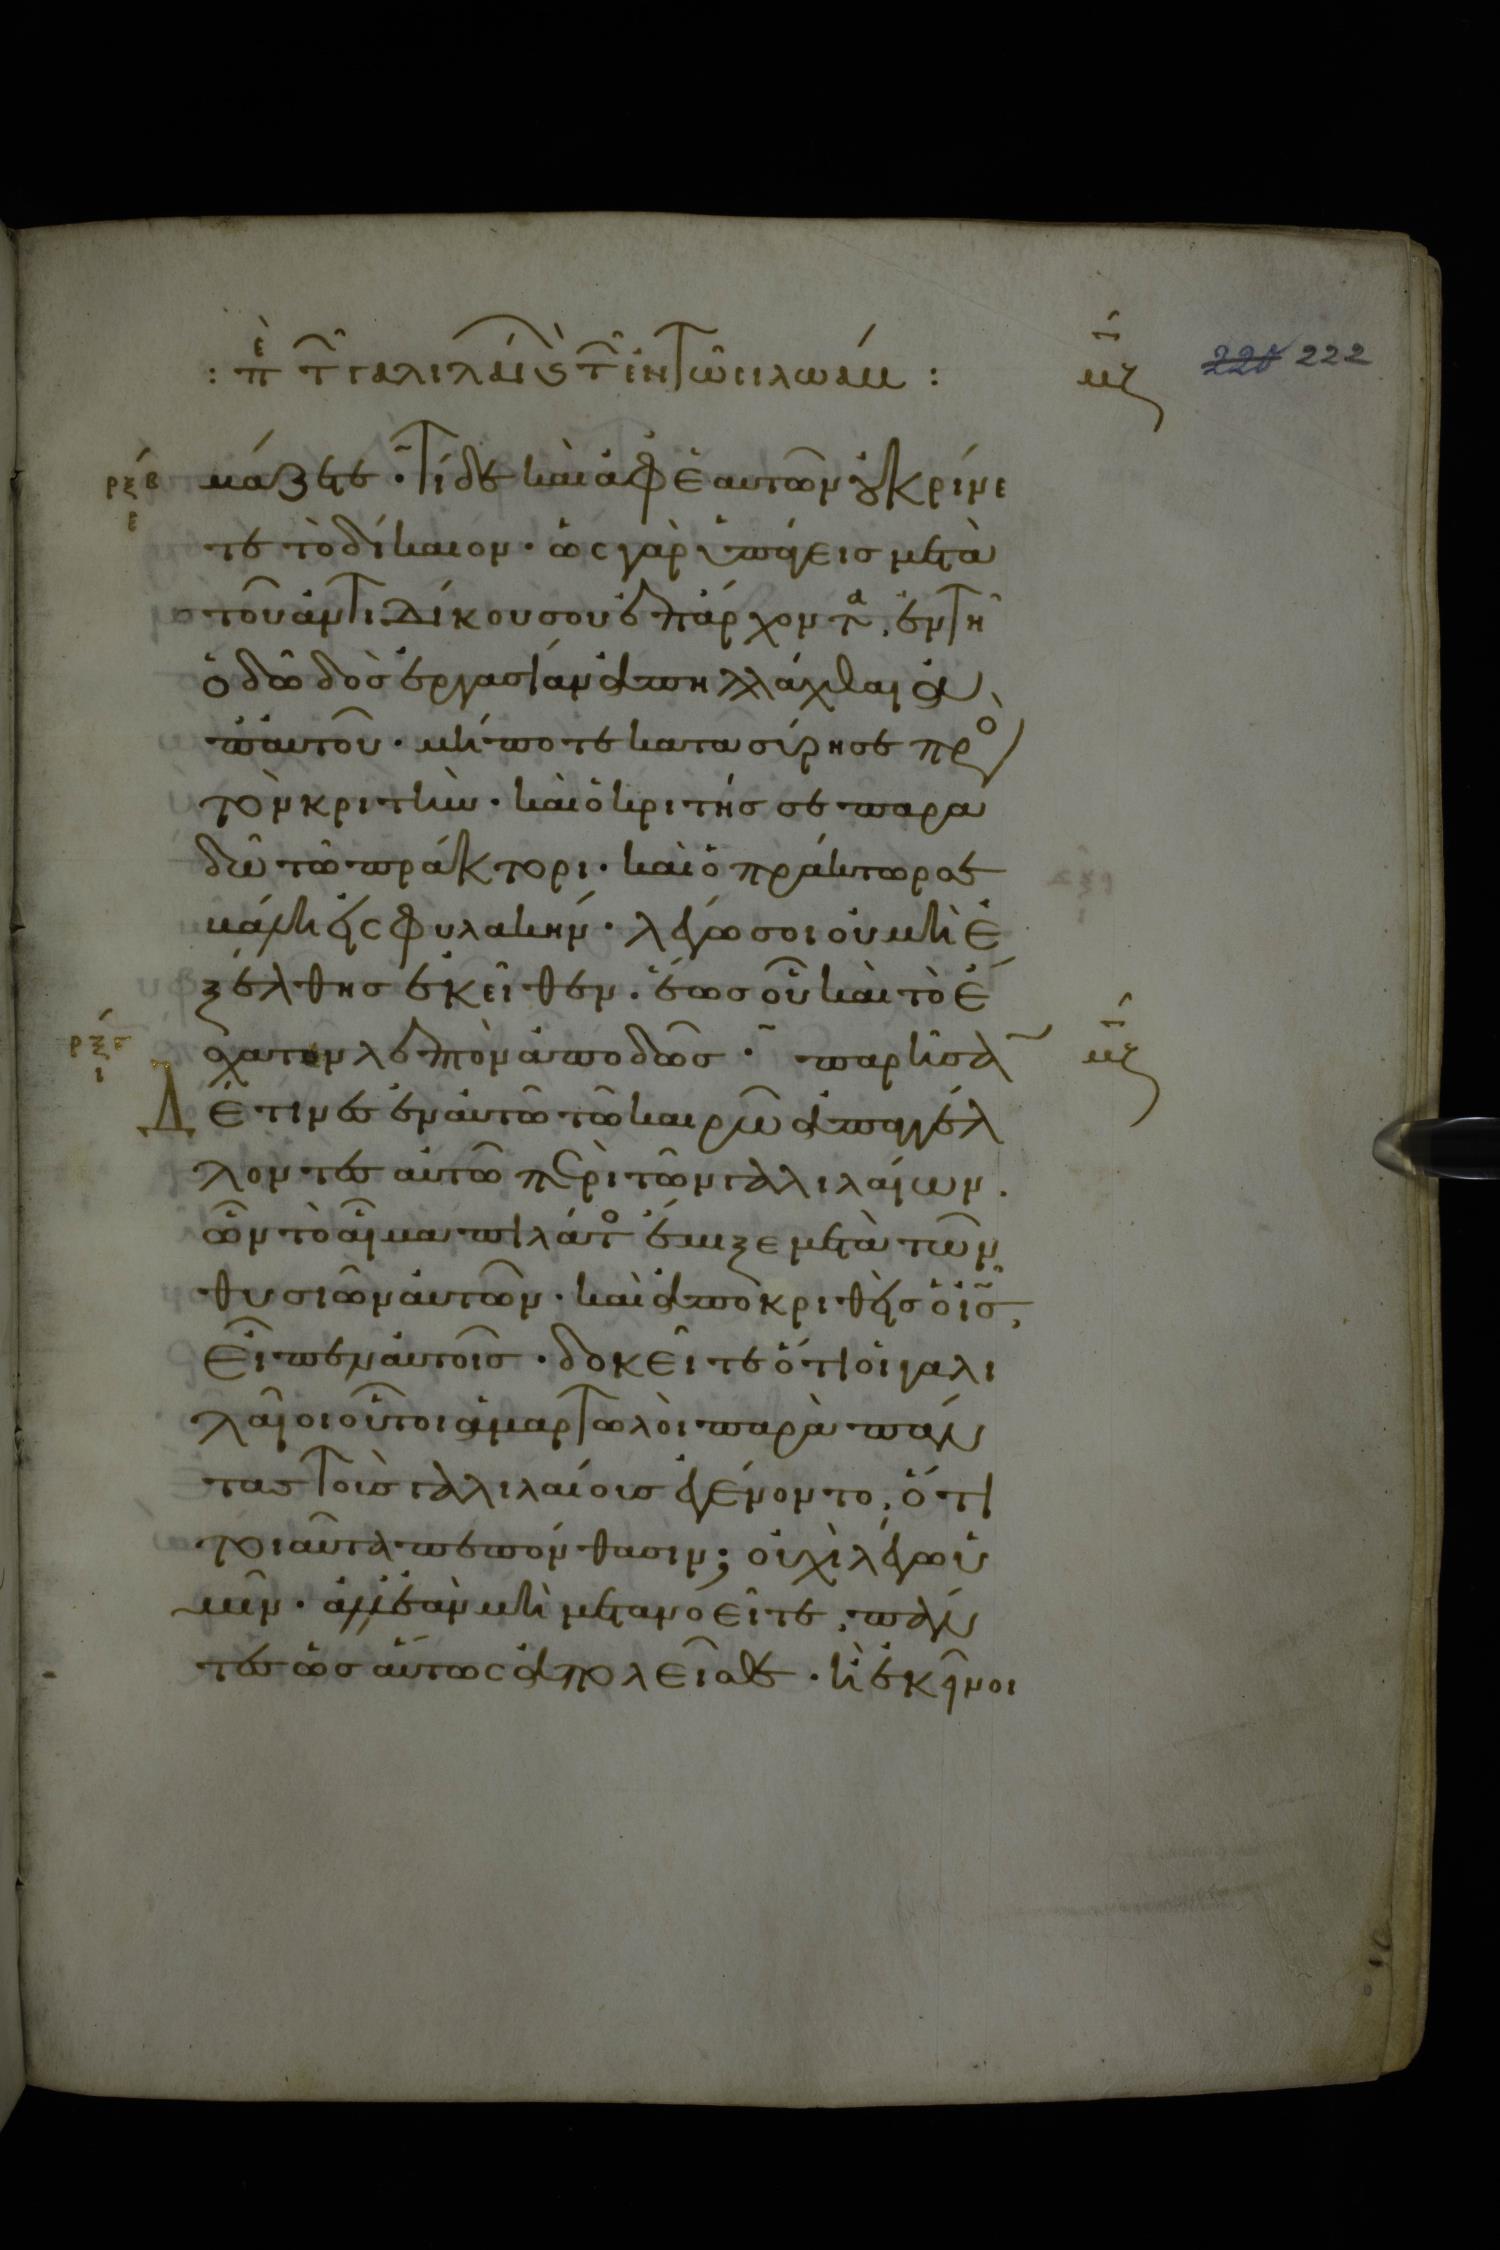 : πε τ γαλιλαι ϛ τ ἐν τῶ σιλωάμ : μζ 222
ρξβ μάζετε · τί δὲ καὶ ἀφ ἑαυτῶν οὐ κρίνε
ε
τε τὸ δίκαιον · ὡς γὰρ ὑπάγεις μετὰ
τοῦ ἀντιδίκου σου ἐπ ἄρχοντα, ἐν τῆ
ὁδῶ δὸς ἐργασίαν ἀπηλλάχθαι ἀ
π αὐτοῦ · μήποτε κατασύρη σε πρὸς
τὸν κριτὴν · καὶ ὁ κριτής σε παρα
δῶ τῶ πράκτορι · καὶ ὁ πράκτωρ σε
βάλη εἰς φυλακήν · λέγω σοι οὐ μὴ ἐ
ξέλθης ἐκεῖθεν · ἕως οὗ καὶ τὸ ἔ
ρξγ σχατον λεπτὸν ἀποδῶς · παρῆσα μζ
ι
Δ ὲ τινες ἐν αὐτῶ τῶ καιρῶ ἀπαγγέλ
λοντες αὐτῶ περὶ τῶν γαλιλαίων ·
ὧν τὸ αἷμα πιλάτος ἔμιξε μετὰ τῶν
θυσιῶν αὐτῶν · καὶ ἀποκριθεὶς ὁ ις,
εἶπεν αὐτοῖς · δοκεῖτε ὅτι οἱ γαλι
λαῖοι οὗτοι ἁμαρτωλοὶ παρὰ πάν
τας τοὺς γαλιλαίους ἐγένοντο, ὅτι
τοιαῦτα πεπόνθασιν; οὐχὶ λέγω ὑ
μῖν · ἀλλ ἐὰν μὴ μετανοεῖτε, πάν
τες ὡσαύτως ἀπολεῖσθε · ἢ ἐκεῖνοι